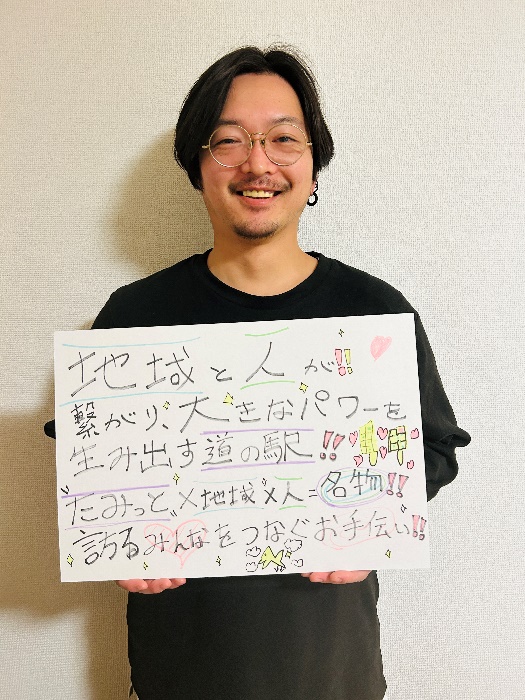 地域と人が!!
繋がり、大きなパワーを
生み出す道の駅!!
"たみっと"×地域×人=名物!!
誇るみんなをつなぐお手伝い!!